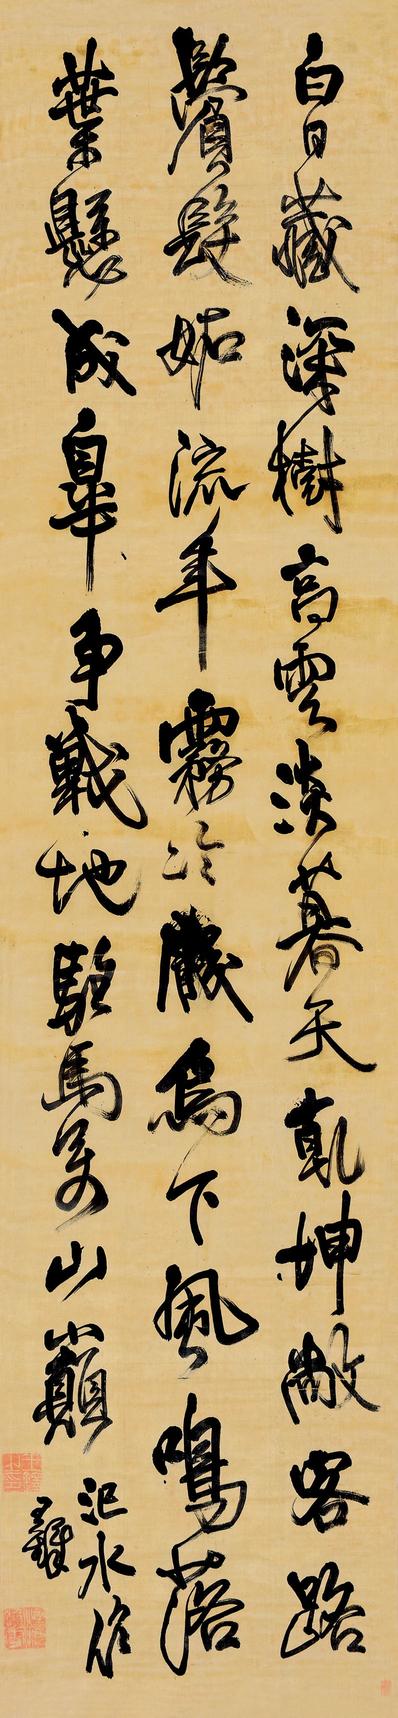 白日藏深樹高雲淡暮天乾坤敝客路
鬢髮妬流年霧冷烏下風鳴落
葉懸成皋爭戰地駐馬萬山巔
汜水作
王鐸